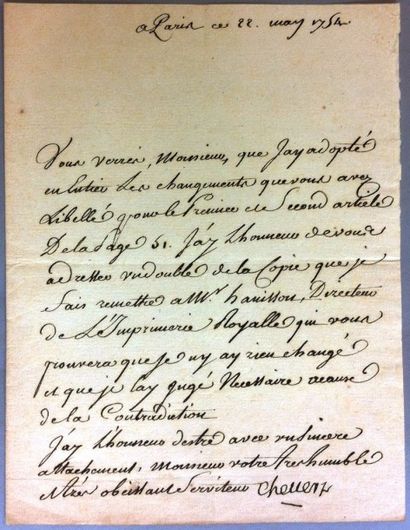 a Paris ce 22. may 1754
Vous verrés, Monsieur, que Jay adopté
en Entier Les changements que vous avez
Libellé pour le Premier et Second article
De la Page 51. Jay L'honneur de vous
adresser un double de la Copie que je
fais remettre a Mr. hanisson, Directeur
de L'Imprimerie Royalle qui vous
prouvera que je ny ay rien changé
et que je lay jugé Necessaire acause
de la Contradiction
Jay L'honneur destre avec un sincere
attachement, Monsieur votre tres humble
et trés obeissant Serviteur